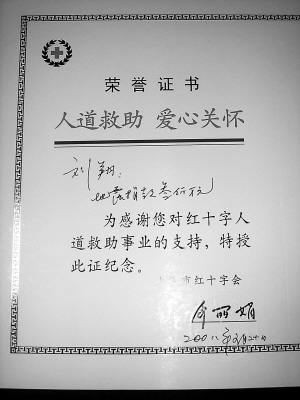 荣誉证书
人道救助 爱心关怀
刘翔：
地震捐款叁仟元
为感谢您对红十字人
道救助事业的支持，特授
此证纪念。
市红十字会
丽娟